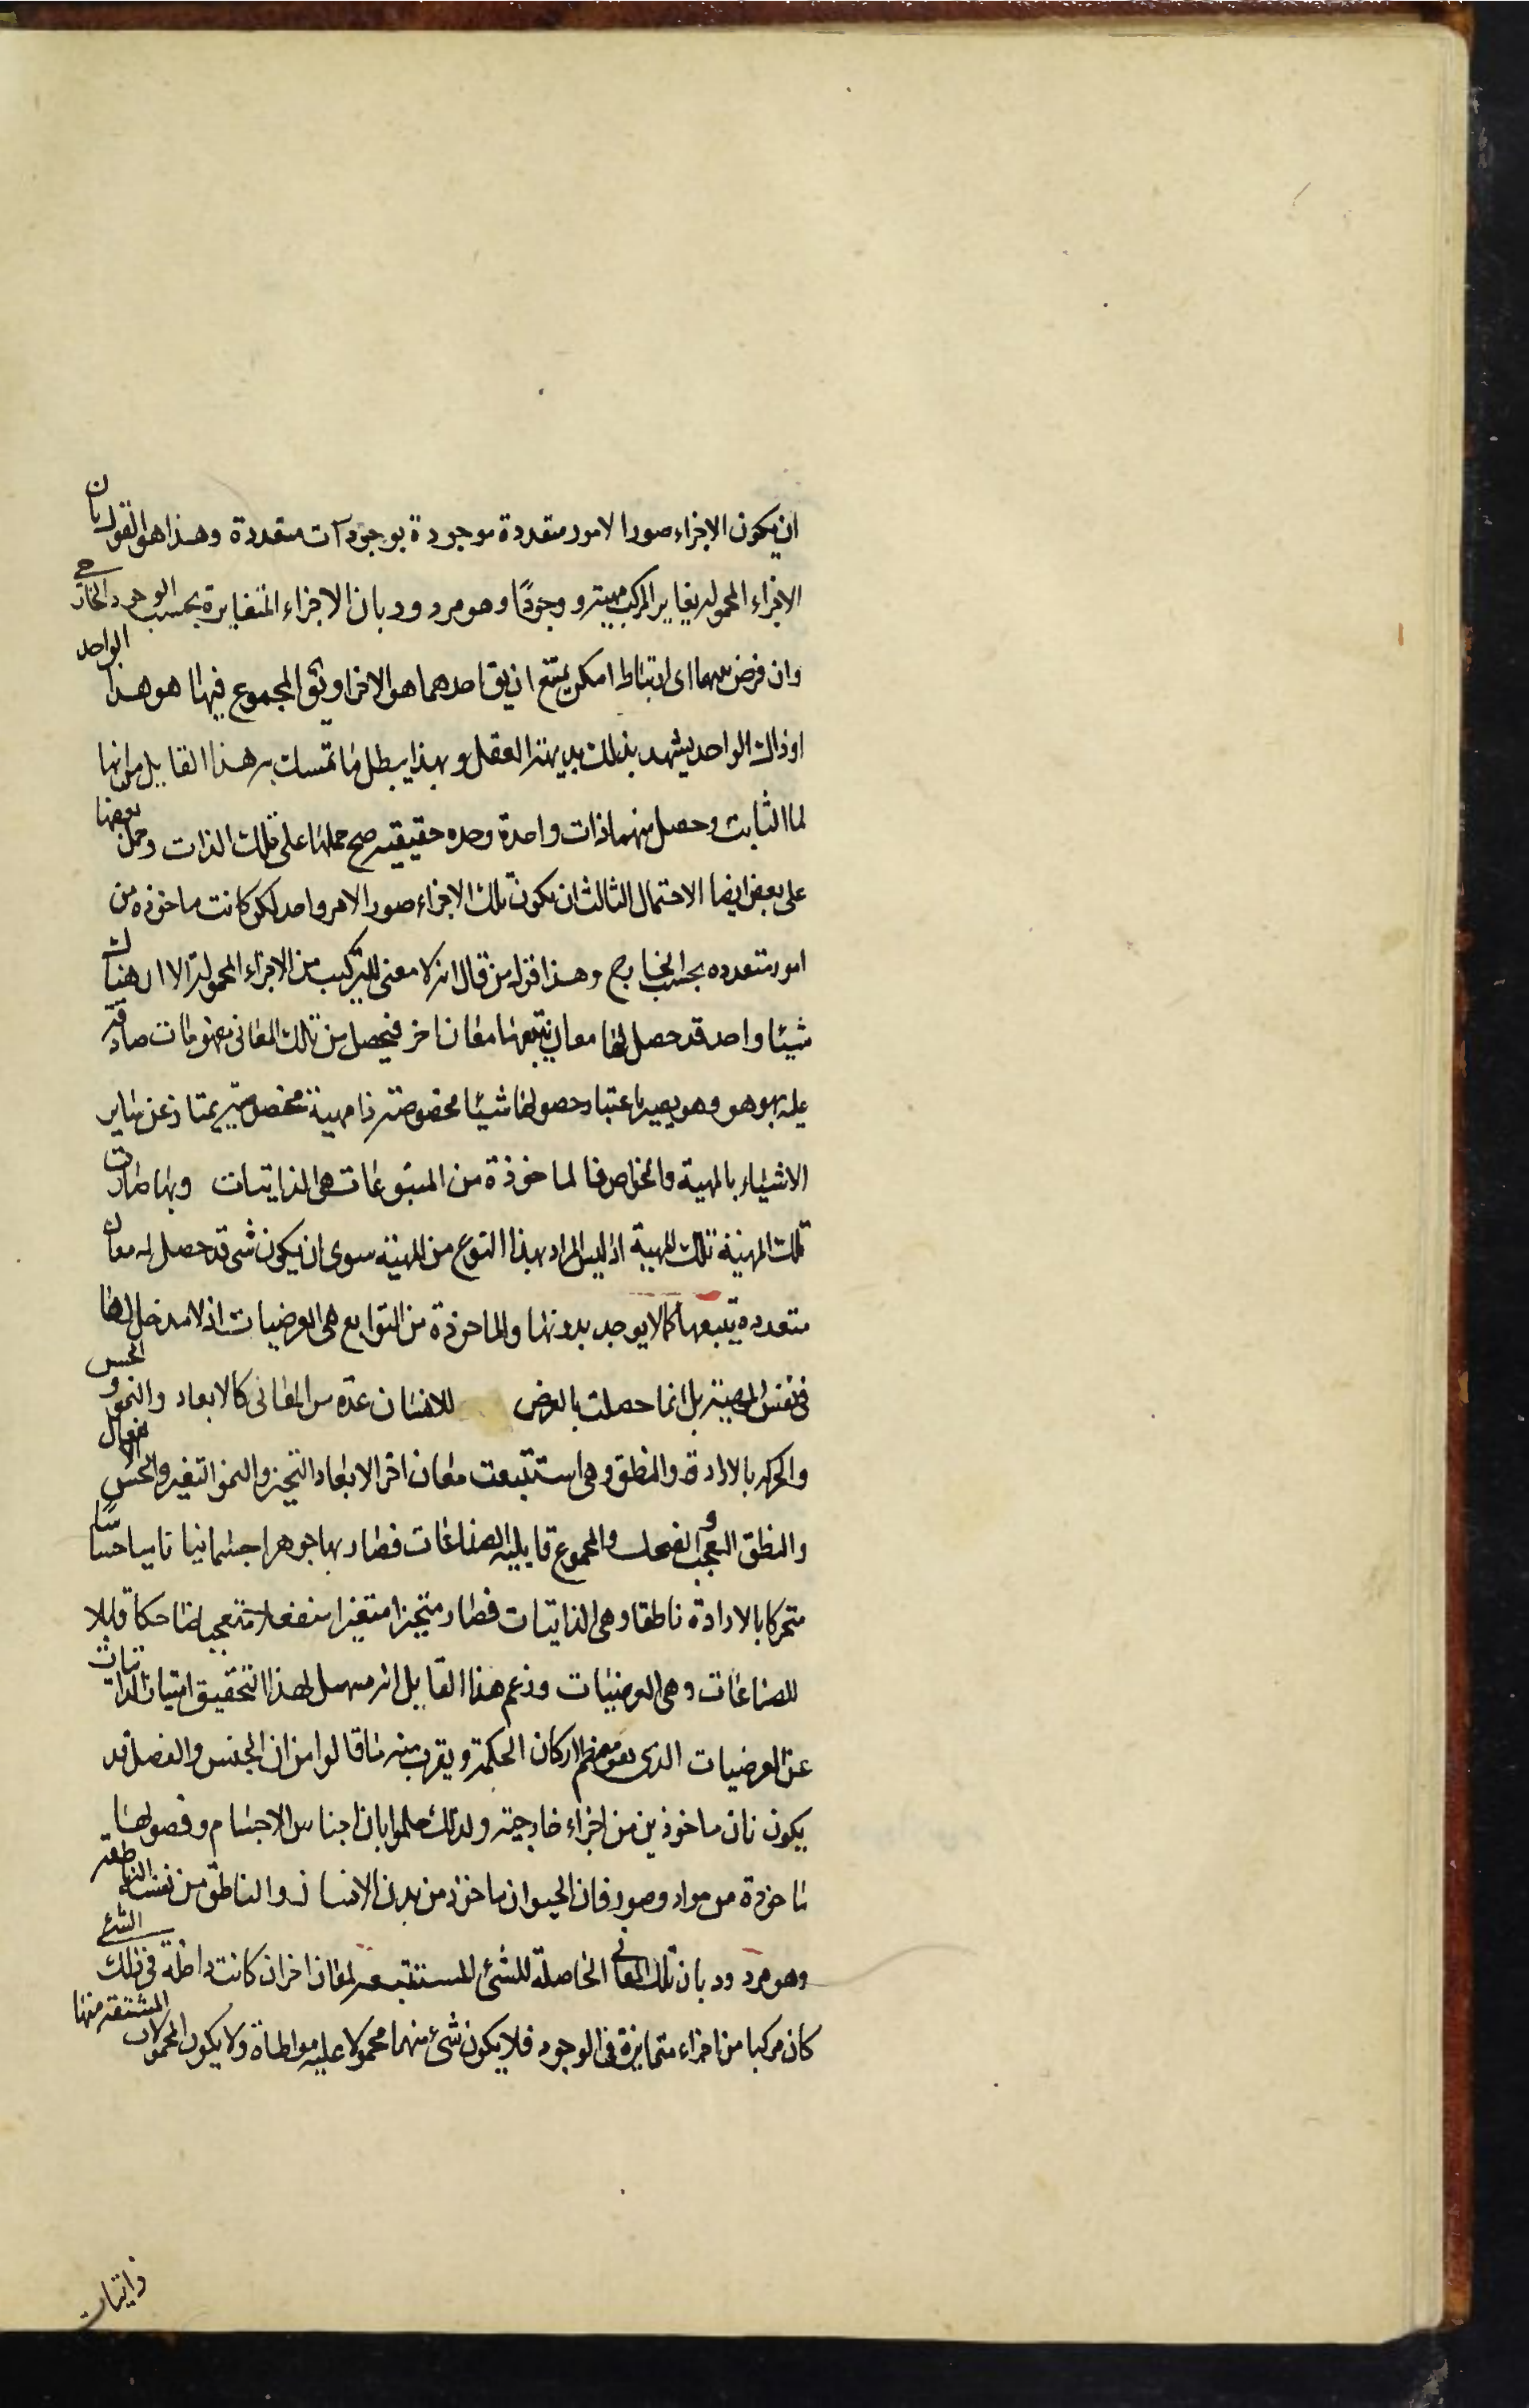 ان يكون الاجزاء صورا لامور متعددة موجودة بوجودات متعددة وهذا هو القول بان
الاجزاء المحموله يغاير المركب مهية ووجودًا وهو مردود بان الاجزاء المتغايرة بحسب الوجود الخارجى
وان فرض بينهما اى ارتباط امكن يمتنع ان يق احدهما هو الاخر او يق المجموع فيها هو هذا الواحد
او ذاك الواحد يشهد بذلك بديهة العقل وبهذا يبطل ما تمسك به هذا القايل من انها
لما التامت وحصل منهما ذات واحدة وحده حقيقيه صح حملها على تلك الذات وحمل بعضها
على بعض ايضا الاحتمال الثالث ان يكون تلك الاجزاء صورا لامر واحد لكن كانت ماخوذه من
امور متعدده بحسب الخارج وهذا قول من قال انه لا معنى للتركيب من الاجزاء المحمولة الا ان هناك
شيئا واحد قد حصل لها معان يتبعها معان اخر فيحصل من تلك المعانى مفهومات صادقة
عليه بهو هو وهو يصير باعتبار حصولها شيئا مخصوصة ذا مهية مخصوصة يمتاز عن ساير
الاشياء بالمهية والخواص فالماخوذة من المتبوعات هى الذاتيات وبها صارت
تلك المهية تلك المهية اذ ليس المراد بهذا النوع من المهية سوى ان يكون شى قد حصل له معان
متعدده يتبعها كمالا يوجد بدونها والماخوذة من التوابع هى العرضيات اذ لا مدخل لها
فى نفس المهية بل انما حصلت بالعرض للانسان عدة من المعانى كالابعاد والنمو والحس
والحركه بالارادة والنطق وهى استتبعت معان اخر الابعاد التحيز والنمو التغير والحس الانفعال
والنطق التعجب و الضحك والمجموع قابلية الصناعات فصار بها جوهرا جسمانيا ناميا حساسًا
متحركا بالارادة ناطقا وهى الذاتيات فصار متحيزا متغيرا منفعلا متعجبا ضاحكا قابلا
للصناعات وهى العرضيات وزعم هذا القايل انه يسهل لهذا التحقيق امتياز الذاتيات
عن العرضيات الذى هو معظم اركان الحكمة ويقرب منه ما قالوا من ان الجنس والفصل قد
يكونان ماخوذين من اجزاء خارجية ولذلك حكموا بان اجناس الاجسام وفصولها
ماخوذة من مواد وصور فان الحيوان ماخوذ من بدن الانسان والناطق من نفسه الناطقه
وهو مردود بان تلك المعانى الحاصلة للشئ المستتبعه لمعان اخر ان كانت داخلة فى ذلك الشئ
كان مركبا من اجزاء متمايزة فى الوجود فلا يكون شئ منهما محمولا عليه مواطاة ولا يكون المحمولات المشتقه منها
ذاتيات